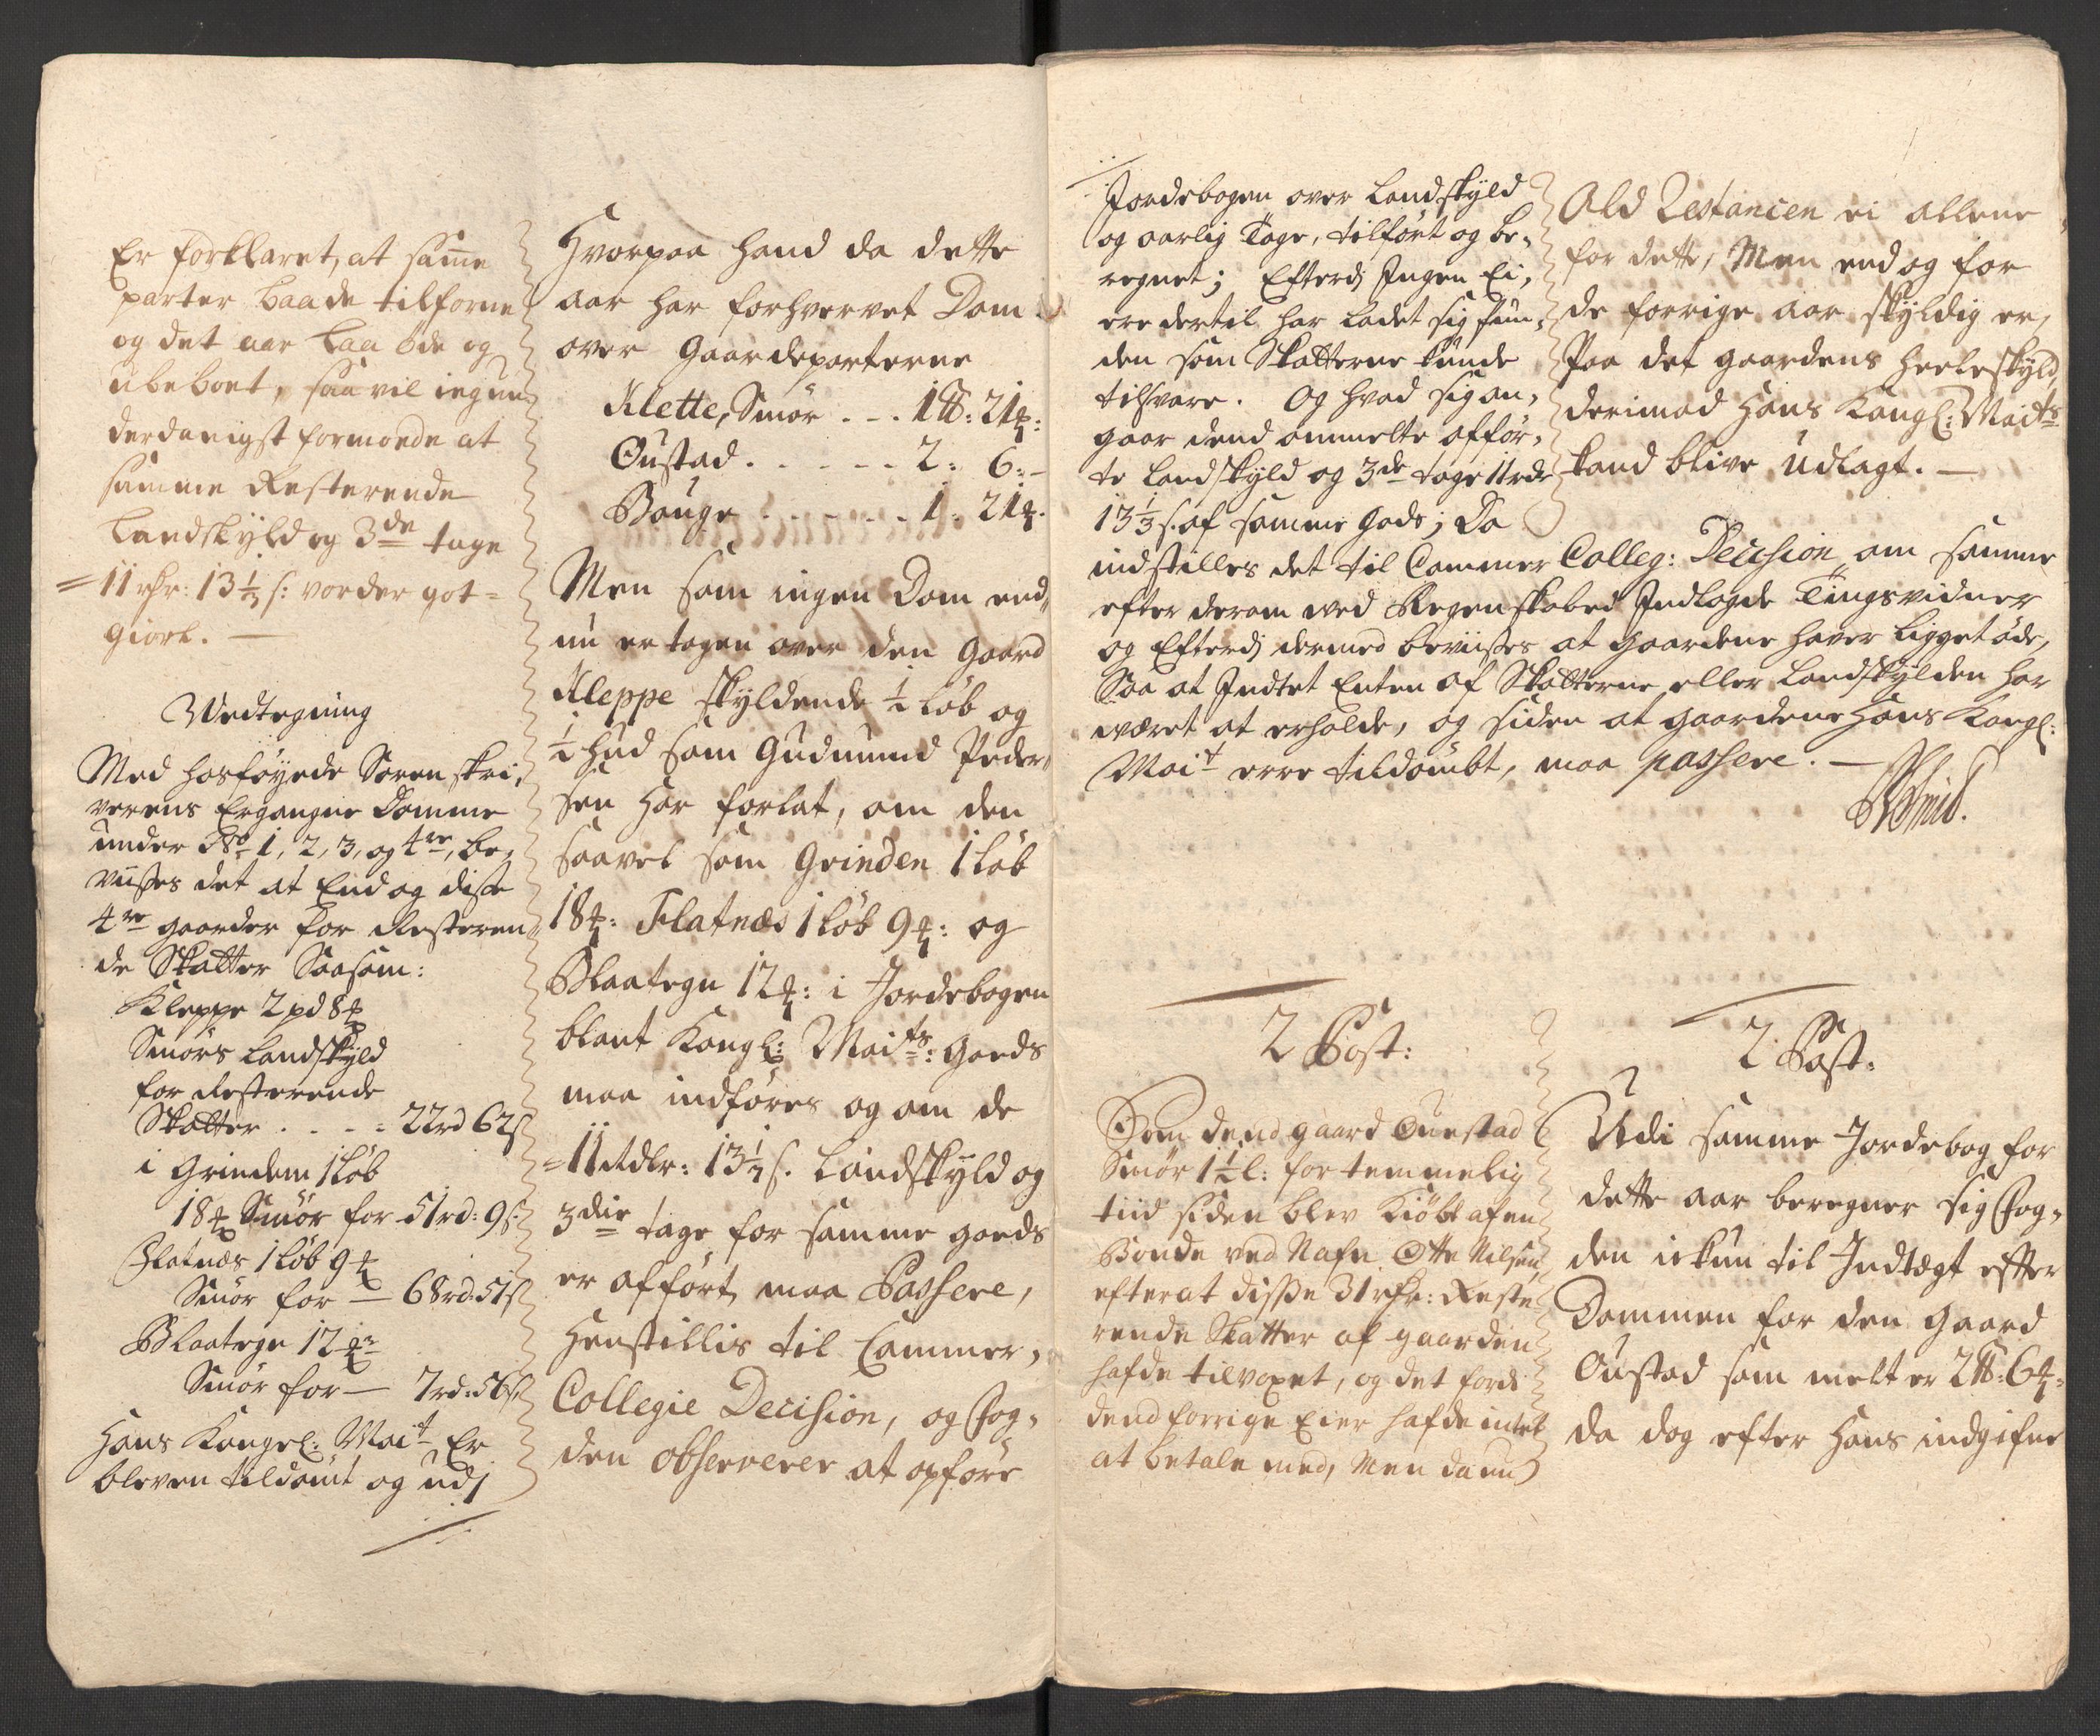 Er forklaret, at samme
parter baade tilforne
og det aar laa öde og
ubeboet, saa vil ieg un
derdanigst formoede at
samme Resterende
Landskyld og 3de tage
11 rdr: 13 1/3 s: vorder got=
giort. —
Vedtegning
Med hosföyede Sorenskri,
verens Ergangne Domme
under No 1, 2, 3, og 4re, be,
viises det at End og disse
4re gaarder for Resteren
de Skatter Saasom:
Kleppe 2 pd 8
Smörs Landskyld
for Resterende
Skatter . . . . 22rd 62s
i Grindem 1 löb
18 Smör for 51rd: 9s
Flatnæs 1 löb 9
Smör for — 68rd: 51s
Blaategn 12
Smör for — 7rd: 56s
Hans Kongel: Mait Er
bleven tildömt og udi
Hvorpaa hand da dette
aar har forhvervet Dom
over Gaardeparterne
Klette, Smör . . . 1 : 21 :
Oustad . . . . . 2: 6: —
Bouge . . . . . . 1: 21 .
Men som ingen Dom end,
nu er tagen over den Gaard
Kleppe skyldende 1/2 löb og
1/2 hud som Gudmund Peder,
sen har forlat, om den
saavel som Grinden 1 löb
18 : Flatnæs 1 löb 9 : og
Blaategn 12 : i Jordebogen
blant Kongl: Maits: Goeds
maa indföres og om de
11 Rdlr: 13 1/3 s. Landskyld og
3die tage for samme goeds
er afført, maa Passere,
Henstillis til Cammer,
Collegie Decision, og Fog,
den observerer at opföre
Jordebogen over Landskyld
og aarlig Tage, tilført og be,
regnet; Efterdj Ingen Ei,
ere dertil har ladet sig fin,
den som Skatterne kunde
tilsvare. Og hvad sig an,
gaar dend ommelte afför,
te Landskyld og 3de tage 11rdr
13 1/3 s. af samme Gods; Da
indstilles det til Cammer Colleg: Decision om samme
efter derom ved Regenskabed Indlagde Tingsvidner
og Efterdj dermed beviises at Gaardene haver ligget öde,
Saa at Indtet Enten af Skatterne eller Landskylden har
været at erholde, og siden at gaardene Hans Kongl:
Mait erre tildömbt, maa passere. —
Old Restancen ei allene
for dette, Men end og for
de forrige aar skyldig er,
Paa det gaardens heele skyld,
derimod Hans Kongl: Maits
kand blive Udlagt. —
2 Post:
Som dend gaard Ouestad
Smör 1 1/2 l: for temmelig
tiid siden blev Kiöbt af en
Bonde ved Nafn Otte Nilsen
efterat disse 31 rdr: Reste
rende Skatter af gaarden
hafde tilvoxet, og det fordi
dend forrige Eier hafde intet
at betale med, Men da nu
2 Post:
Udi samme Jordebog for
dette aar beregner sig Fog,
den ickun til Indtægt efter
Dommen for den Gaard
Oustad som melt er 2 : 6
da dog efter hans indgifne